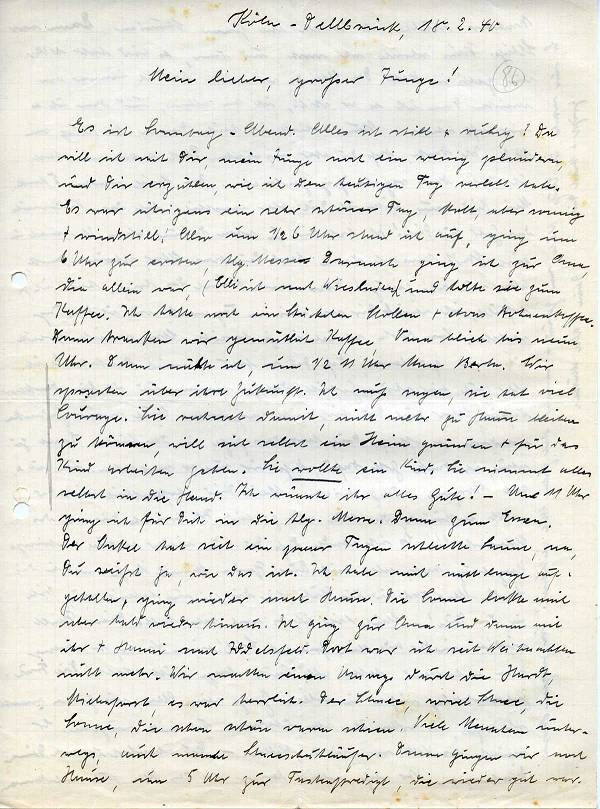 Köln - Dellbrück, 18. 2. 40
Mein lieber, großer Junge!
86
Es ist Sonntag - Abend. Alles ist still + ruhig! Da
will ich mit Dir, mein Junge noch ein wenig plaudern,
und Dir erzählen, wie ich den heutigen Tag verlebt habe.
Es war übrigens ein sehr schöner Tag, kalt, aber sonnig
+ windstill. Also um 1/2 6 Uhr stand ich auf, ging um
6 Uhr zur ersten, hlg. Messe. Darnach ging ich zur Oma,
die allein war, (Elli ist nach Wiesbaden) und holte sie zum
Kaffee. Ich hatte noch ein Stückchen Stollen + etwas Bohnenkaffee.
Dann tranken wir gemütlich Kaffee. Oma blieb bis neun
Uhr. Dann um 1/2 11 Uhr kam Berta. Wir
sprachen über ihre Zukunft. Ich muß sagen, sie hat viel
Courage. Sie rechnet damit, nicht mehr zu Hause bleiben
zu können, will sich selbst ein Heim gründen + für das
Kind arbeiten gehen. Sie wollte ein Kind, Sie nimmt alles
selbst in die Hand. Ich wünsche ihr alles Gute! - Um 11 Uhr
ging ich für Dich in die hlg. Messe. Dann zum Essen.
Der Onkel hat seit ein paar Tagen schlechte Laune, na,
Du weißt ja, wie das ist. Ich habe mich nicht lange auf-
gehalten, ging wieder nach Hause. Die Sonne lockte mich
aber bald wieder hinaus. Ich ging zur Oma und dann mit
ihr + Hanni nach Iddelsfeld. Dort war ich seit Weihnachten
nicht mehr. Wir machten einen Umweg durch die Hardt,
es war herrlich. Der Schnee, wieviel Schnee, die
Sonne, die schon schön warm schien. Viele Menschen unter-
wegs, auch manche Schneeschuhläufer. Dann gingen wir nach
Hause, um 5 Uhr zur Fastenpredigt, die wieder gut war.